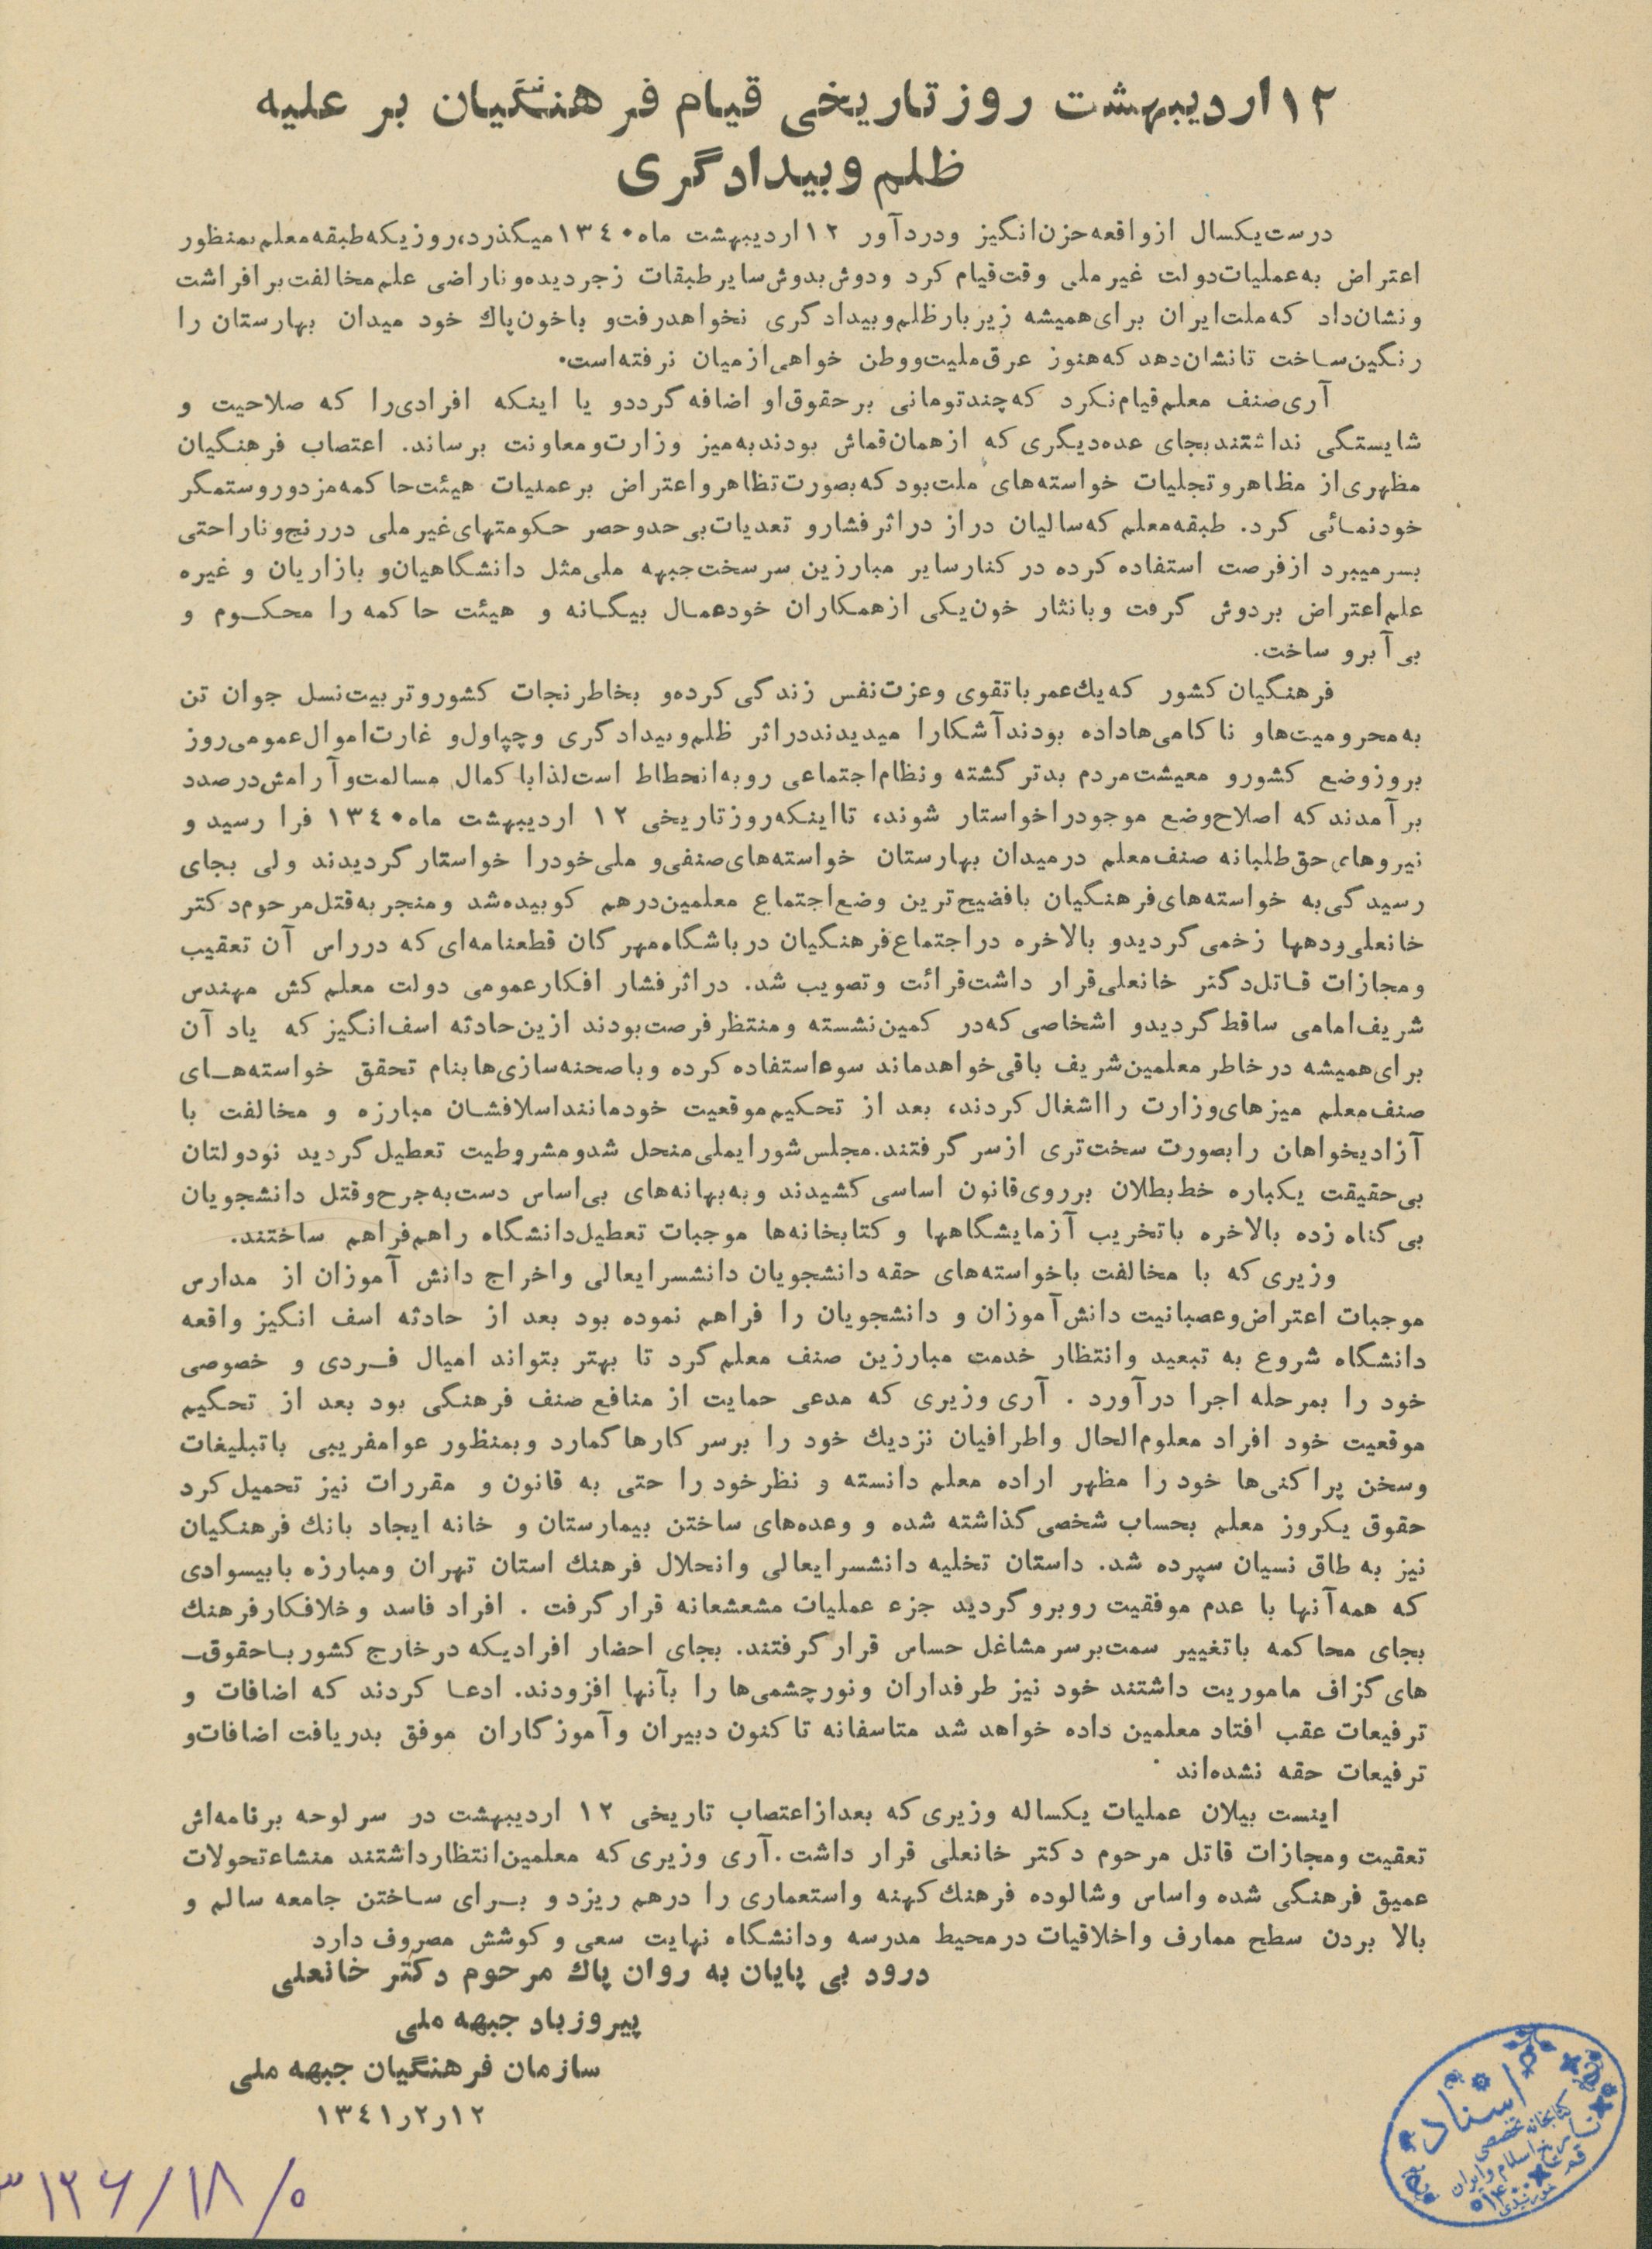 ۱۲ اردیبهشت روز تاریخی قیام فرهنگیان بر علیه
ظلم و بیدادگری
درست یکسال از واقعه حزن‌انگیز و دردآور ۱۲ اردیبهشت ماه ۱۳۴۰ میگذرد، روزیکه طبقه معلم بمنظور
اعتراض به عملیات دولت غیر ملی وقت قیام کرد و دوش بدوش سایر طبقات زجردیده و ناراضی علم مخالفت برافراشت
و نشان داد که ملت ایران برای همیشه زیر بار ظلم و بیدادگری نخواهد رفت و با خون پاك خود میدان بهارستان را
رنگین ساخت تا نشان دهد که هنوز عرق ملیت و وطن خواهی از میان نرفته است.
آری صنف معلم قیام نکرد که چند تومانی بر حقوق او اضافه گردد و یا اینکه افرادی را که صلاحیت و
شایستگی نداشتند بجای عده دیگری که از همان قماش بودند به میز وزارت و معاونت برساند. اعتصاب فرهنگیان
مظهری از مظاهر و تجلیات خواسته‌های ملت بود که بصورت تظاهر و اعتراض بر عملیات هیئت حاکمه مزدور و ستمگر
خودنمائی کرد. طبقه معلم که سالیان دراز در اثر فشار و تعدیات بی حد و حصر حکومتهای غیر ملی در رنج و ناراحتی
بسر میبرد از فرصت استفاده کرده در کنار سایر مبارزین سرسخت جبهه ملی مثل دانشگاهیان و بازاریان و غیره
علم اعتراض بر دوش گرفت و با نثار خون یکی از همکاران خود عمال بیگانه و هیئت حاکمه را محکوم و
بی آبرو ساخت.
فرهنگیان کشور که یك عمر با تقوی و عزت نفس زندگی کرده و بخاطر نجات کشور و تربیت نسل جوان تن
به محرومیت‌ها و ناکامی‌ها داده بودند آشکارا میدیدند در اثر ظلم و بیدادگری و چپاول و غارت اموال عمومی روز
بروز وضع کشور و معیشت مردم بدتر گشته و نظام اجتماعی رو به انحطاط است لذا با کمال مسالمت و آرامش در صدد
برآمدند که اصلاح وضع موجود را خواستار شوند، تا اینکه روز تاریخی ۱۲ اردیبهشت ماه ۱۳۴۰ فرا رسید و
نیروهای حق طلبانه صنف معلم در میدان بهارستان خواسته‌های صنفی و ملی خود را خواستار گردیدند ولی بجای
رسیدگی به خواسته‌های فرهنگیان با فضیح ترین وضع اجتماع معلمین درهم کوبیده شد و منجر به قتل مرحوم دکتر
خانعلی و دهها زخمی گردید و بالاخره در اجتماع فرهنگیان در باشگاه مهرگان قطعنامه‌ای که در راس آن تعقیب
و مجازات قاتل دکتر خانعلی قرار داشت قرائت و تصویب شد. در اثر فشار افکار عمومی دولت معلم کش مهندس
شریف امامی ساقط گردید و اشخاصی که در کمین نشسته و منتظر فرصت بودند از این حادثه اسف انگیز که یاد آن
برای همیشه در خاطر معلمین شریف باقی خواهد ماند سوء استفاده کرده و با صحنه سازی‌ها بنام تحقق خواسته‌های
صنف معلم میزهای وزارت را اشغال کردند، بعد از تحکیم موقعیت خود مانند اسلافشان مبارزه و مخالفت با
آزادیخواهان را بصورت سخت تری از سر گرفتند. مجلس شورایملی منحل شد و مشروطیت تعطیل گردید نودولتان
بی حقیقت یکباره خط بطلان بر روی قانون اساسی کشیدند و به بهانه‌های بی اساس دست به جرح و قتل دانشجویان
بی گناه زده بالاخره با تخریب آزمایشگاهها و کتابخانه‌ها موجبات تعطیل دانشگاه را هم فراهم ساختند.
وزیری که با مخالفت با خواسته‌های حقه دانشجویان دانشسرایعالی و اخراج دانش آموزان از مدارس
موجبات اعتراض و عصبانیت دانش آموزان و دانشجویان را فراهم نموده بود بعد از حادثه اسف انگیز واقعه
دانشگاه شروع به تبعید و انتظار خدمت مبارزین صنف معلم کرد تا بهتر بتواند امیال فردی و خصوصی
خود را بمرحله اجرا درآورد . آری وزیری که مدعی حمایت از منافع صنف فرهنگی بود بعد از تحکیم
موقعیت خود افراد معلوم الحال و اطرافیان نزدیك خود را بر سر کارها گمارد و بمنظور عوامفریبی با تبلیغات
و سخن پراکنی‌ها خود را مظهر اراده معلم دانسته و نظر خود را حتی به قانون و مقررات نیز تحمیل کرد
حقوق یکروز معلم بحساب شخصی گذاشته شده و وعده‌های ساختن بیمارستان و خانه ایجاد بانك فرهنگیان
نیز به طاق نسیان سپرده شد. داستان تخلیه دانشسرایعالی و انحلال فرهنك استان تهران و مبارزه با بیسوادی
که همه آنها با عدم موفقیت روبرو گردید جزء عملیات مشعشعانه قرار گرفت . افراد فاسد و خلافکار فرهنك
بجای محاکمه با تغییر سمت بر سر مشاغل حساس قرار گرفتند. بجای احضار افرادیکه در خارج کشور با حقوق-
های گزاف ماموریت داشتند خود نیز طرفداران و نورچشمی‌ها را بآنها افزودند. ادعا کردند که اضافات و
ترفیعات عقب افتاد معلمین داده خواهد شد متاسفانه تا کنون دبیران و آموزگاران موفق بدریافت اضافات و
ترفیعات حقه نشده‌اند .
اینست بیلان عملیات یکساله وزیری که بعد از اعتصاب تاریخی ۱۲ اردیبهشت در سر لوحه برنامه‌اش
تعقیت و مجازات قاتل مرحوم دکتر خانعلی قرار داشت. آری وزیری که معلمین انتظار داشتند منشاء تحولات
عمیق فرهنگی شده و اساس و شالوده فرهنك کهنه و استعماری را درهم ریزد و برای ساختن جامعه سالم و
بالا بردن سطح معارف و اخلاقیات در محیط مدرسه و دانشگاه نهایت سعی و کوشش مصروف دارد
درود بی پایان به روان پاك مرحوم دکتر خانعلی
پیروز باد جبهه ملی
سازمان فرهنگیان جبهه ملی
۱۲ر۲ر۱۳۴۱
اسناد
کتابخانه تخصصی
تاریخ اسلام و ایران
قم
۳۱۲۶/۱۸/۰